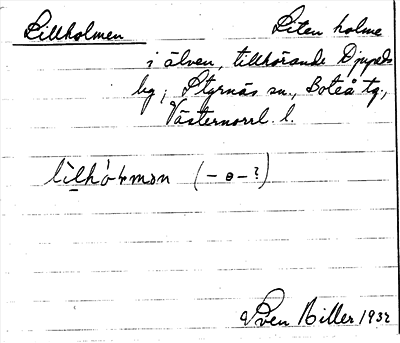 Lillholmen Liten holme
i älven, tillhörande Djupeds
by, Styrnäs sn., Boteå tg.,
Västernorrl. l.
(– ə – ?)
Sven Hiller 1932